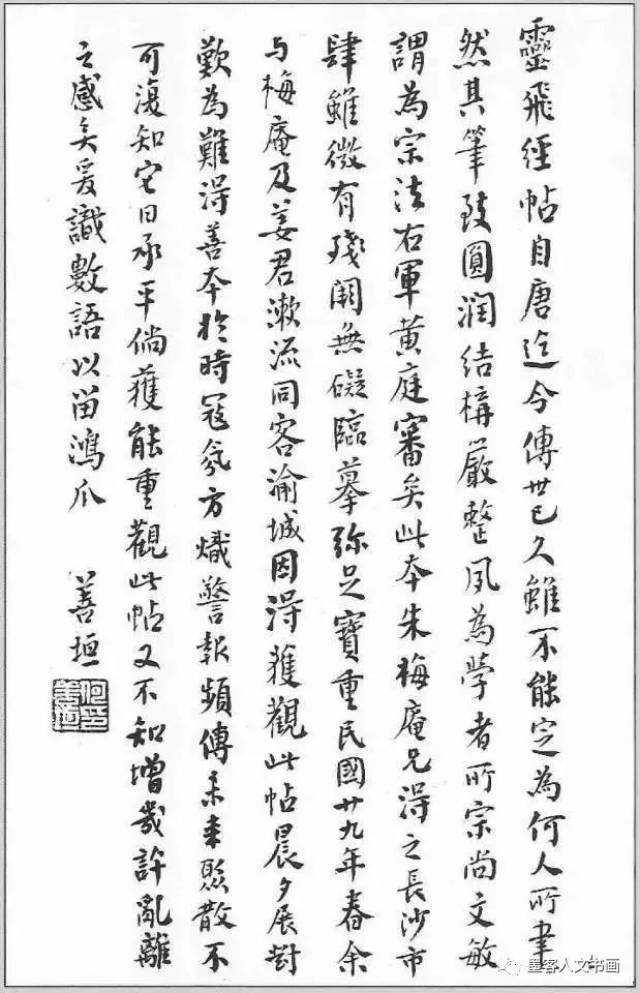 靈飛經帖自唐迄今傳世已久雖不能定為何人所書
然其筆致圓潤結構嚴整夙為學者所宗尚文敏
謂為宗法右軍黃庭審矣此本朱梅庵兄得之長沙市
肆雖微有殘闕無礙臨摹弥足寶重民國廿九年春余
与梅庵及姜君漱流同客渝城因得獲觀此帖晨夕展對
歎為難得善本於時寇氛方熾警報頻傳未來聚散不
可復知它日承平倘獲能重觀此帖又不知增幾許亂離
之感矣爰識數語以留鴻爪
善垣
墨客人文书画